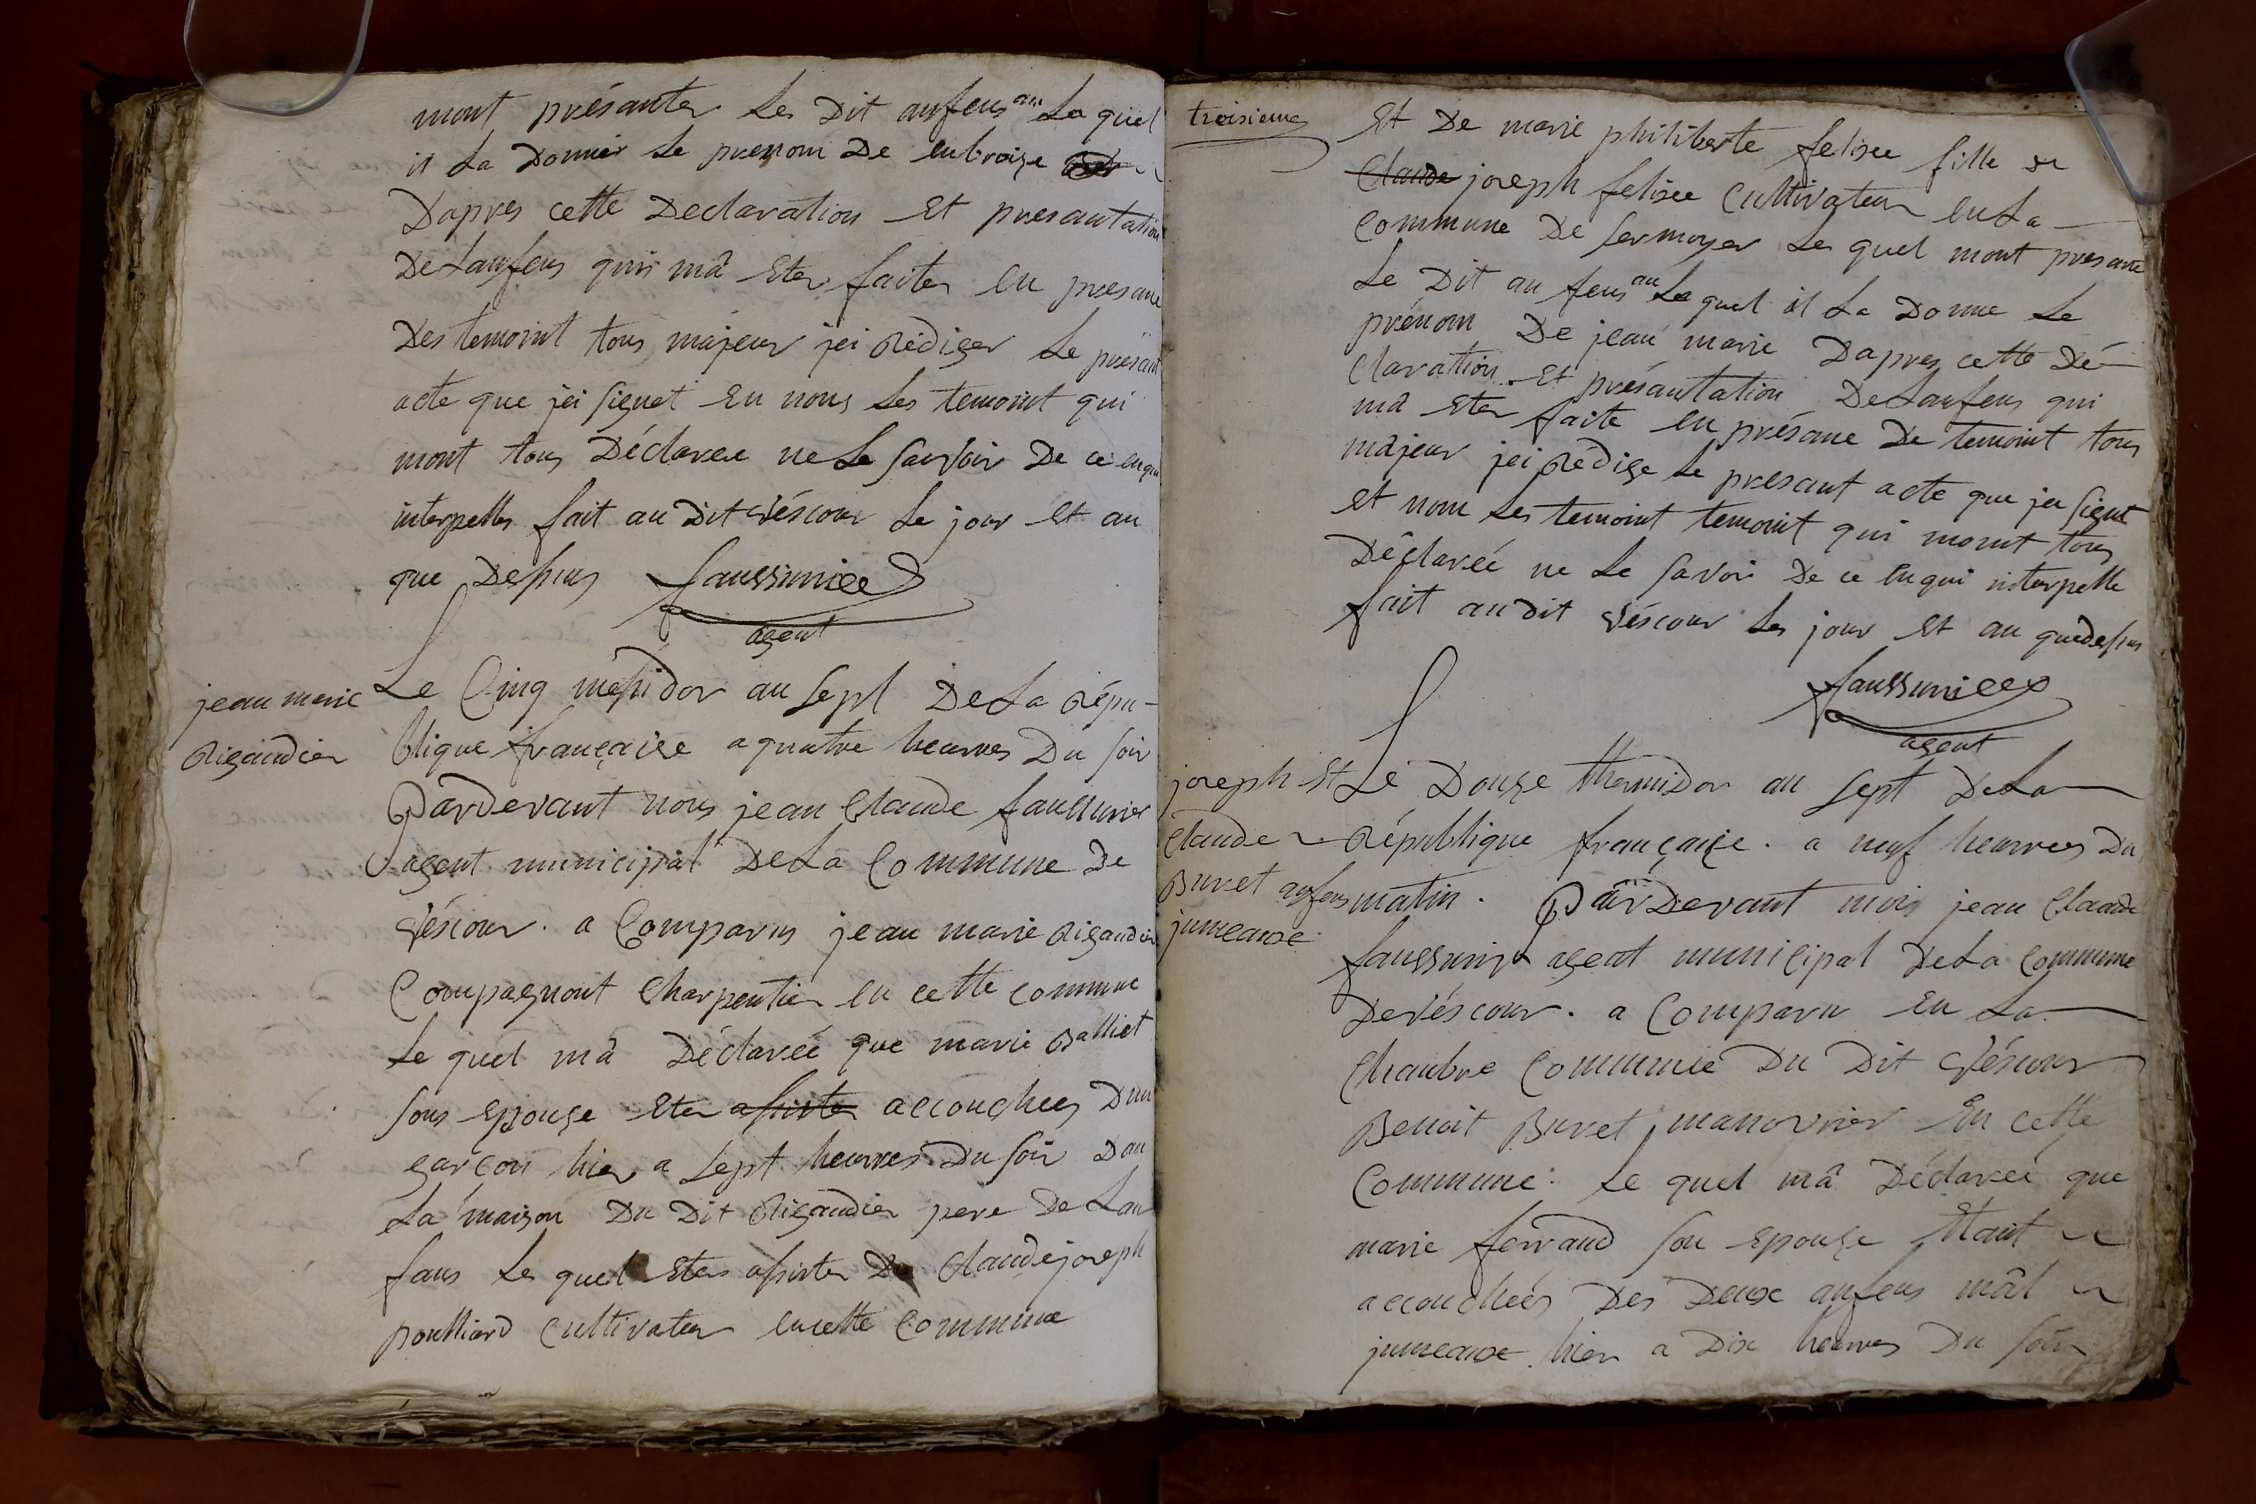 mont présanter Les Dit anfens au La quel
il La Donner Le prenom De enbroize
D'apres cette Declaration Et presantation
De Lanfens qui mâ Eter faiter en presane
Des temoint tous majeur jei Rédiger Le présant
acte que jei signet En nous Les temoint qui
mont tous Déclaree ne Le savoir De ce enqui
interpeller fait au Dit véscour Le jour Et an
que Dessus faussurier
agent
jean marie
Rigaudier
Le Cinq messidor an sept De La Répu-
blique française a quatre heurres Du soir
Pardevant nous jean Claude faussurier
agent municipal De La Commune De
véscour . a Comparus jean marie Rigaudier
Compagnont Charpentier en cette commune
Le quel mâ Déclareé que marie Balliet
sons Epouze Eter assister accouchees D'un
garçon hier a sept heurres Du soir Dan
La maison Du Dit Rigaudier pere De Lan
fans Le quel Eter assister De Claude joseph
poulliard cultivater encette Commune
troisieme
Et De marie philiberte felisee fille De
Claude joseph felisee Cultivateur en La
Commune De sermoyer Les quel mont presanté
Le Dit an fens au La quel il La Donne Le
prénom De jean marie D'apres cette Dé-
claration Et présantation De Lanfens qui
mâ Eter faite en présane De temoint tous
majeur jei Rédige Le presant acte que jei signet
Et nom Les temoint temoint qui mont tous
Déclareé ne Le savoir De ce enqui interpelle
fait au Dit véscour Les jour Et an quedessus
faussurier
agent
joseph Et
Claude
Buret anfens
jumeaux
Le Douze thermidor an sept De La
République française . a neuf heurres Du
matin . Pardevant mois jean Claude
faussurier agent municipal De La Commune
De véscour . a Comparu en La
Chambre Commune Du Dit véscour
Benoit Buret manovrier En cette
Commune : Le quel mâ Déclareé que
marie ferrand son Epouze Etant
accouchées Des Deux anfens mâl
jumeaux hier a Dix heurres Du soir